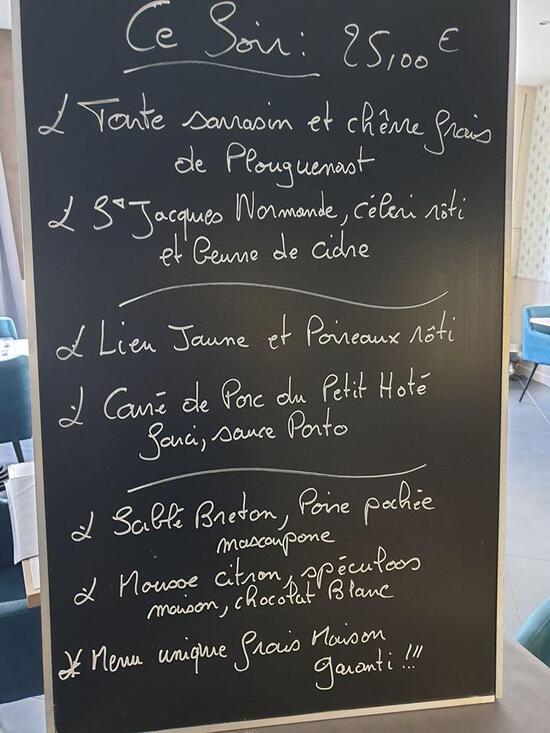 Ce Soir : 25,00 €
Tarte sarrasin et chèvre frais
de Plouguenast
St Jacques Normande, céleri rôti
et Beurre de cidre
Lieu Jaune et Poireaux rôti
Carré de Porc du Petit Hoté
farci, sauce Porto
Sablé Breton, Poire pochée
mascarpone
Mousse citron, spéculoos
maison, chocolat Blanc
* Menu unique frais Maison
garanti !!!